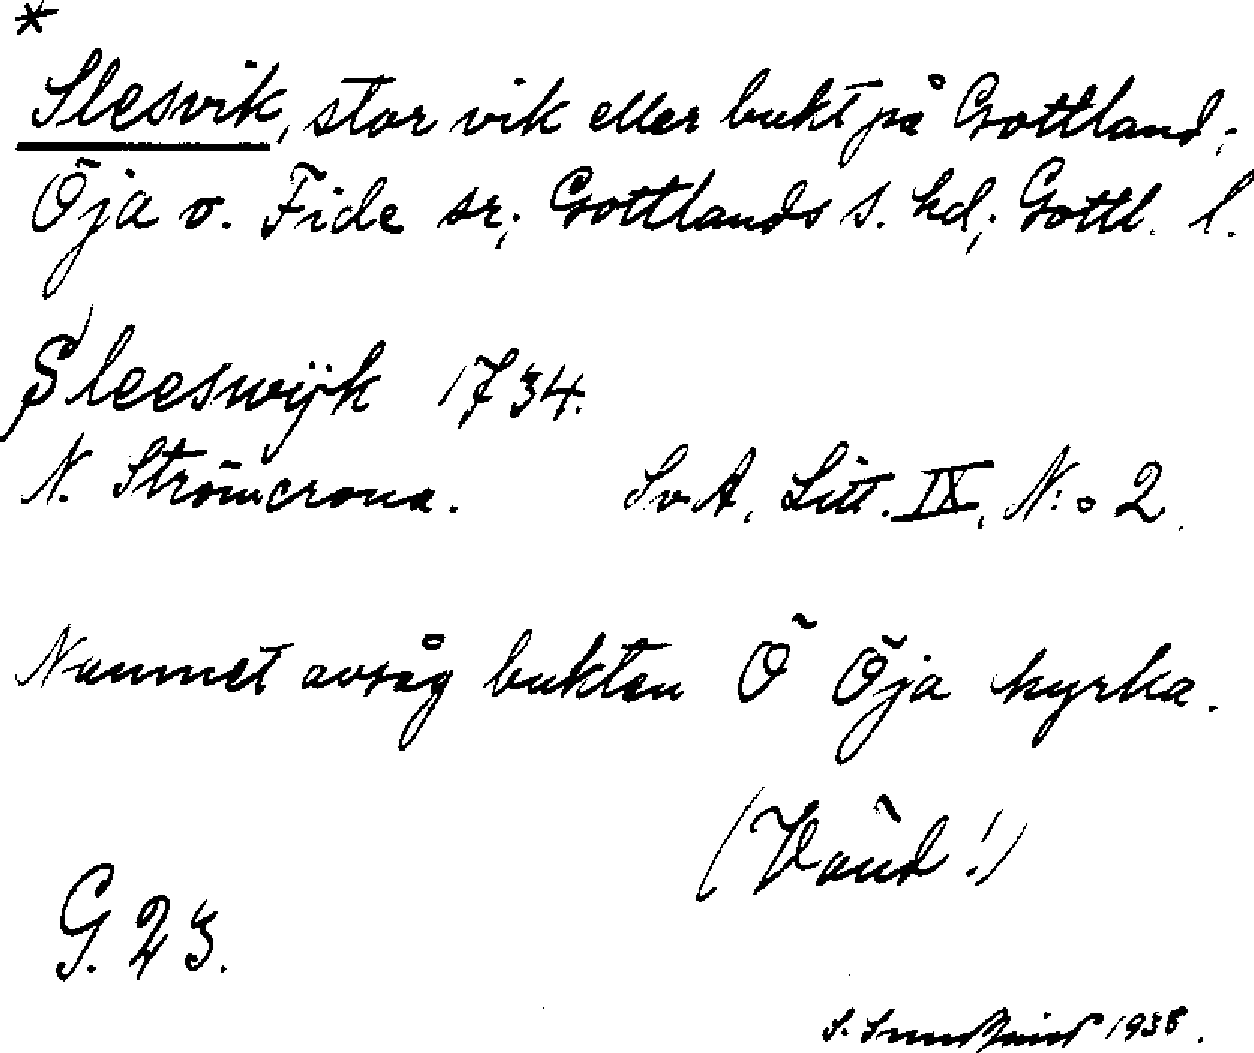 *
Slesvik, stor vik eller bukt på Gottland;
Öja o. Fide sr; Gottlands s. hd; Gottl. l.
Sleeswijk 1734.
N. Strömcrona. Sv. A, Litt. IX, N:o 2.
Namnet avsåg bukten Ö Öja kyrka.
(Vänd!)
G. 23.
S. 1938.